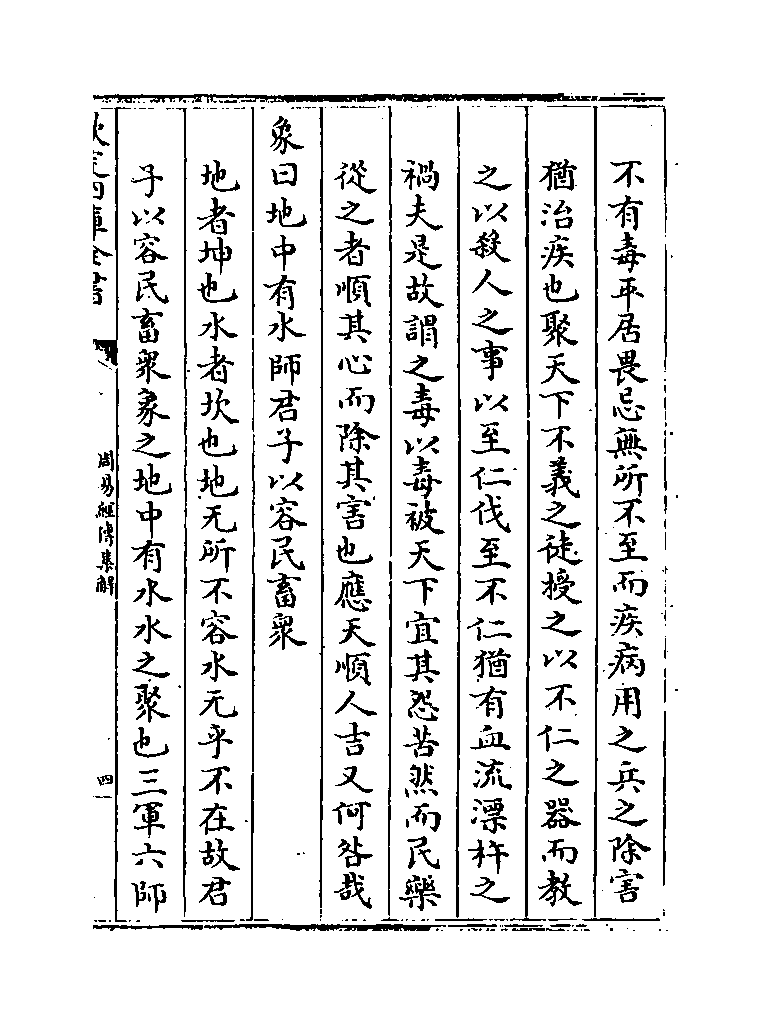 不有毒平居畏忌無所不至而疾病用之兵之除害
猶治疾也聚天下不義之徒授之以不仁之器而教
之以殺人之事以至仁伐至不仁猶有血流漂杵之
禍夫是故謂之毒以毒被天下宜其怨苦然而民樂
從之者順其心而除其害也應天順人吉又何咎哉
象曰地中有水師君子以容民畜衆
地者坤也水者坎也地无所不容水无乎不在故君
子以容民畜衆象之地中有水水之聚也三軍六師
欽定四庫全書
周易經傳集解
四